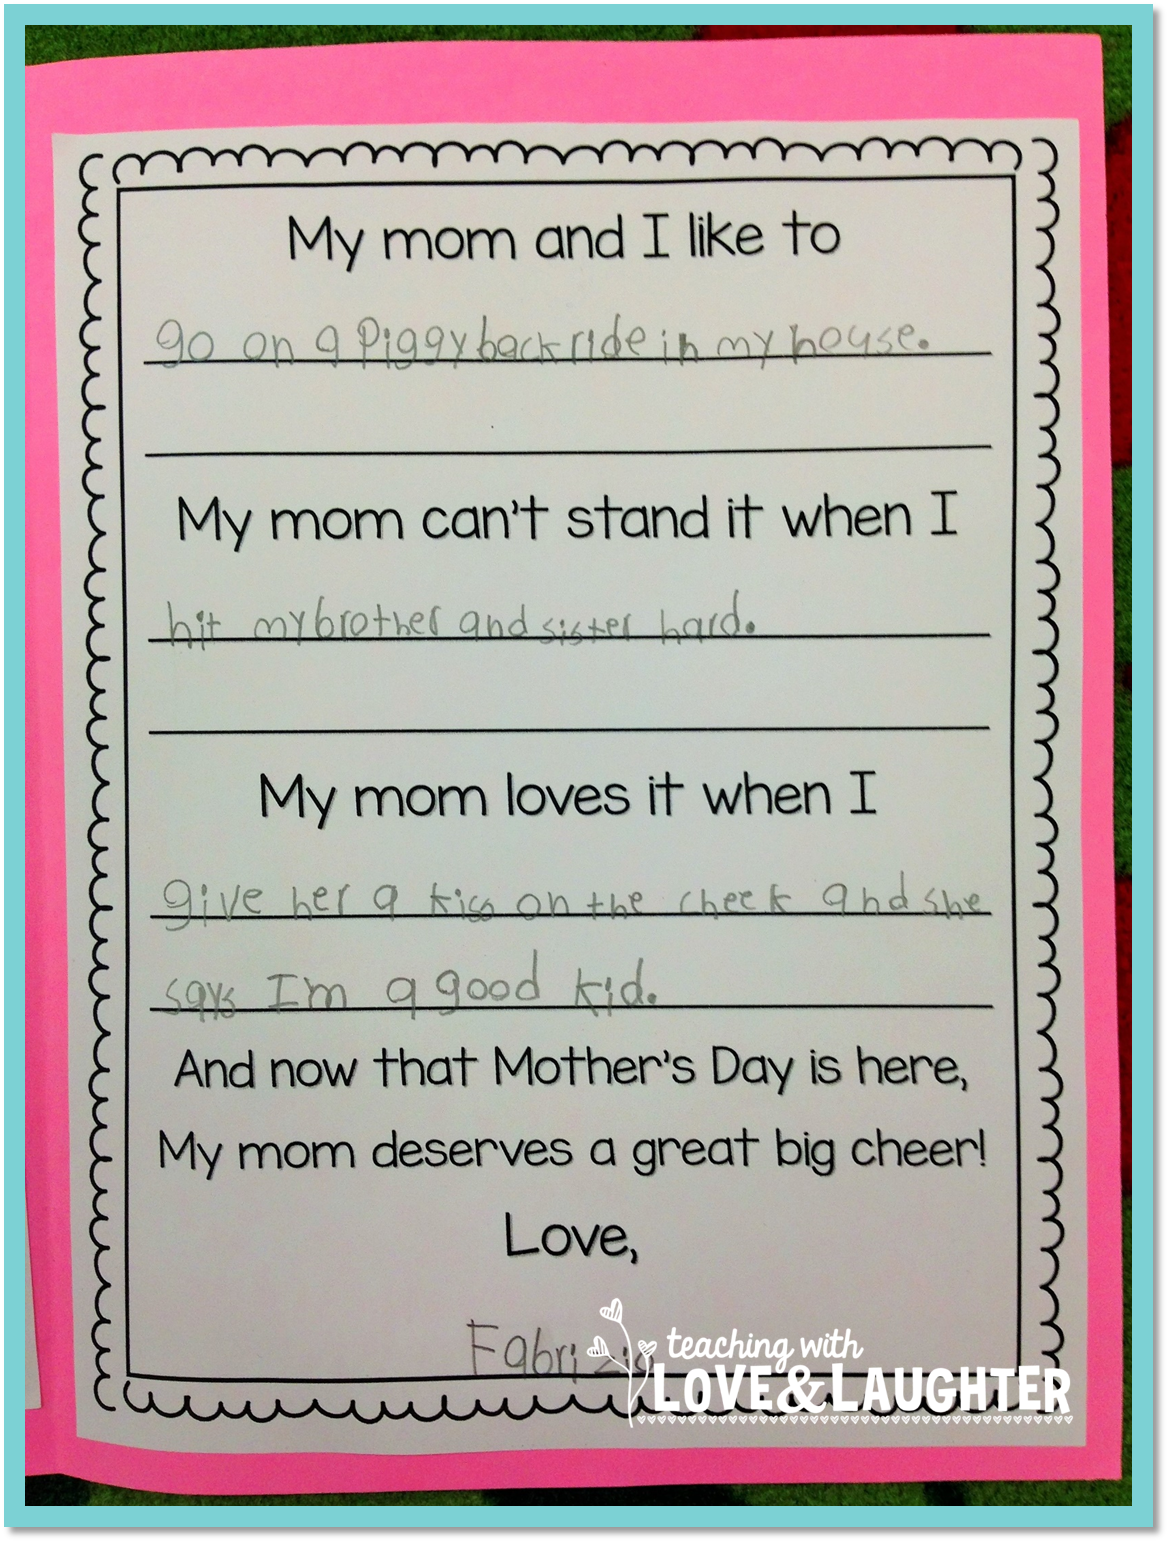 My mom and I like to
go on a Piggyback ride in my house.
My mom can't stand it when I
hit my brother and sister hard.
My mom loves it when I
give her a kiss on the cheek and she
says I'm a good kid.
And now that Mother's Day is here,
My mom deserves a great big cheer!
Love,
Fabrizio
teaching with
LOVE & LAUGHTER